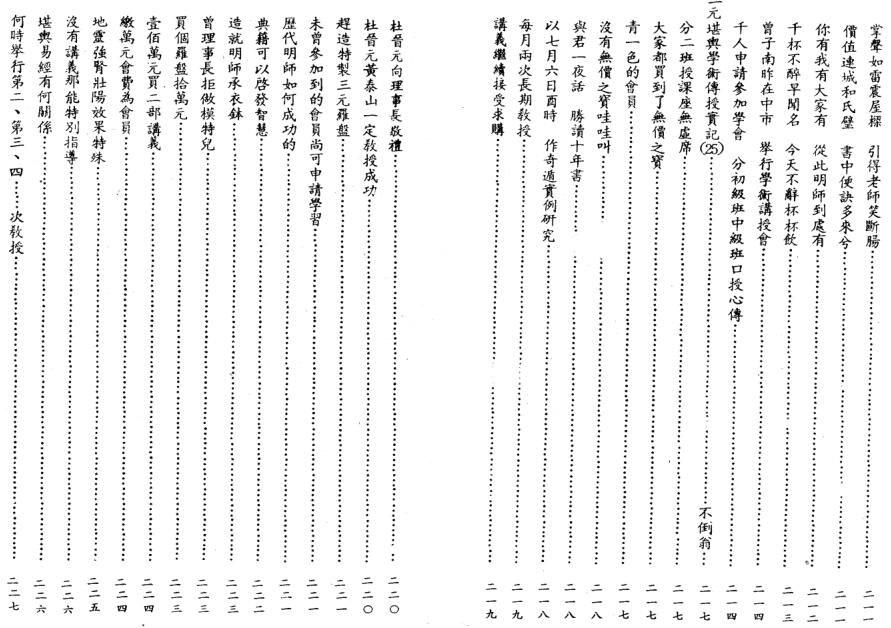 掌聲如雷震屋樑　引得老師笑斷腸……二一一
價值連城和氏璧　書中使訣多來兮……二一一
你有我有大家有　從此明師到處有……二一二
千杯不醉早聞名　今天不辭杯杯飲……二一三
曾子南昨在中市　舉行學術講授會……二一四
千人申請參加學會　分初級班中級班口授心傳……二一四
三元堪輿學術傳授實記(25)……不倒翁……二一七
分二班授課座無虛席……二一七
大家都買到了無價之寶……二一七
青一色的會員……二一七
沒有無價之寶哇哇叫……二一八
與君一夜話　勝讀十年書……二一八
以七月六日酉時　作奇遁實例研究……二一八
每月兩次長期教授……二一九
講義繼續接受求購……二一九
杜晉元向理事長敬禮……二二〇
杜晉元黃泰山一定教授成功……二二〇
趕造特製三元羅盤……二二一
未曾參加到的會員尚可申請學習……二二一
歷代明師如何成功的……二二一
典籍可以啓發智慧……二二二
造就明師承衣鉢……二二三
曾理事長拒做模特兒……二二三
買個羅盤拾萬元……二二三
壹佰萬元買二部講義……二二四
繳萬元會費為會員……二二四
地靈強腎壯陽效果特殊……二二五
沒有講義那能特別指導……二二六
堪輿易經有何關係……二二六
何時舉行第二、第三、四……次教授……二二七